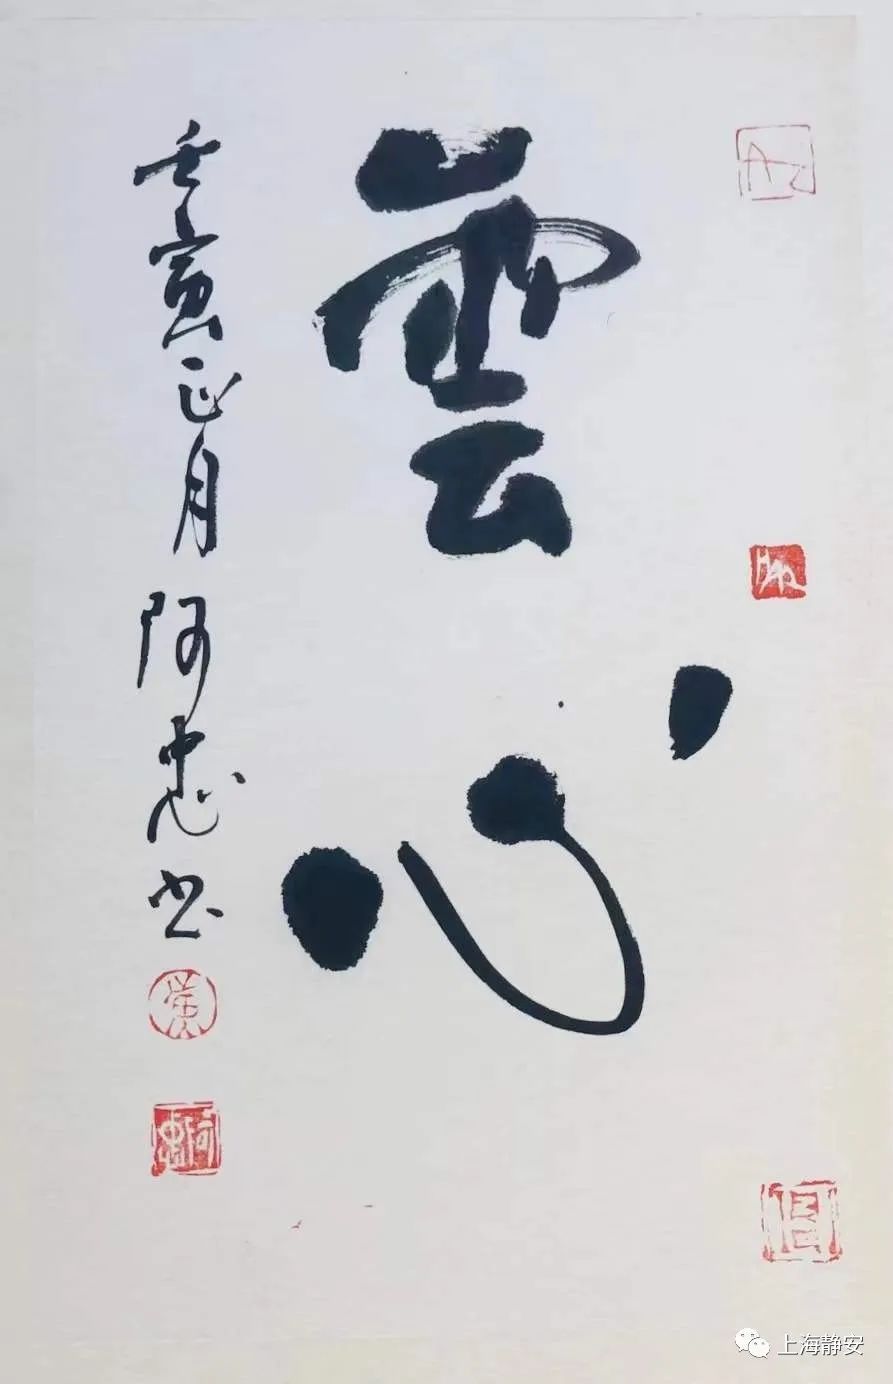 雲心
壬寅正月阿忠书
黄
阿忠
上海静安